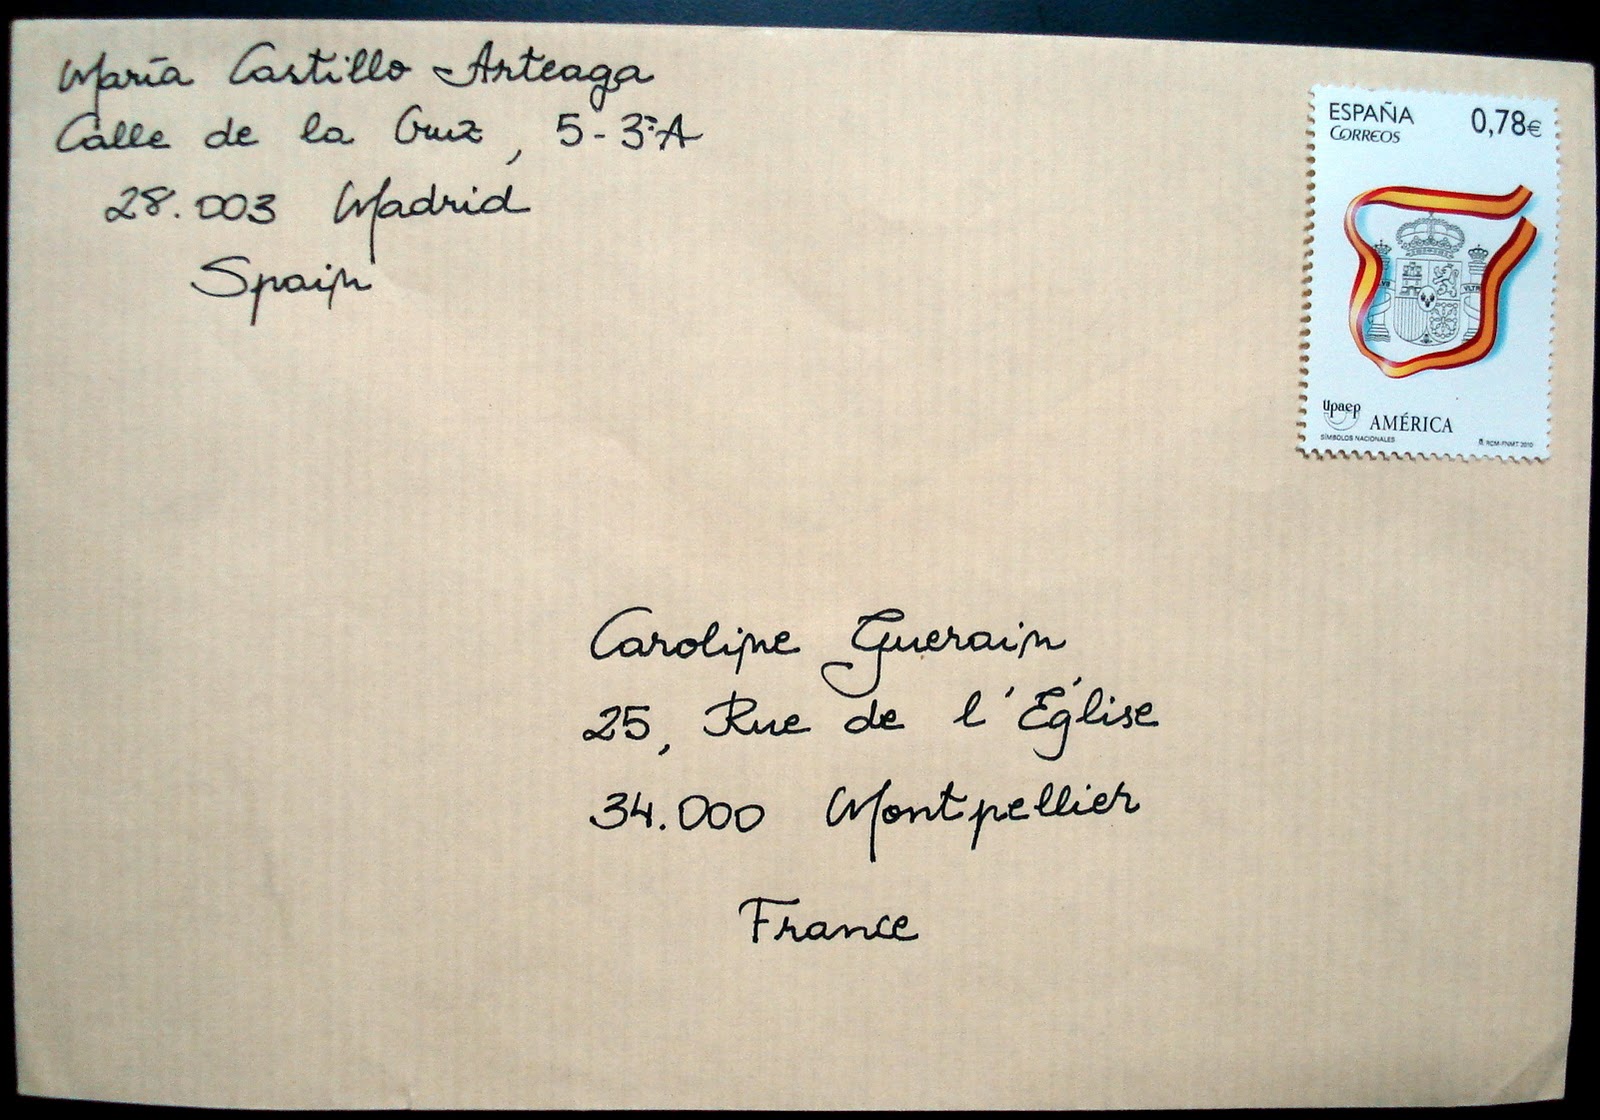 María Castillo Arteaga
Calle de la Cruz, 5-3ºA
28.003 Madrid
Spain
ESPAÑA 0,78€
CORREOS
VLTR
Upaep AMÉRICA
SÍMBOLOS NACIONALES RCM-FNMT 2010
Caroline Guerain
25, Rue de l'Église
34.000 Montpellier
France